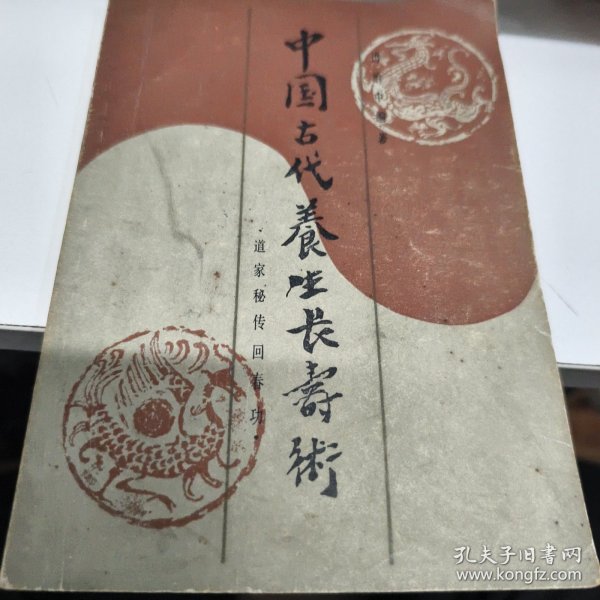 中国古代養生长壽術
·道家秘传回春功·
编著
孔夫子旧书网
www.kongfz.com